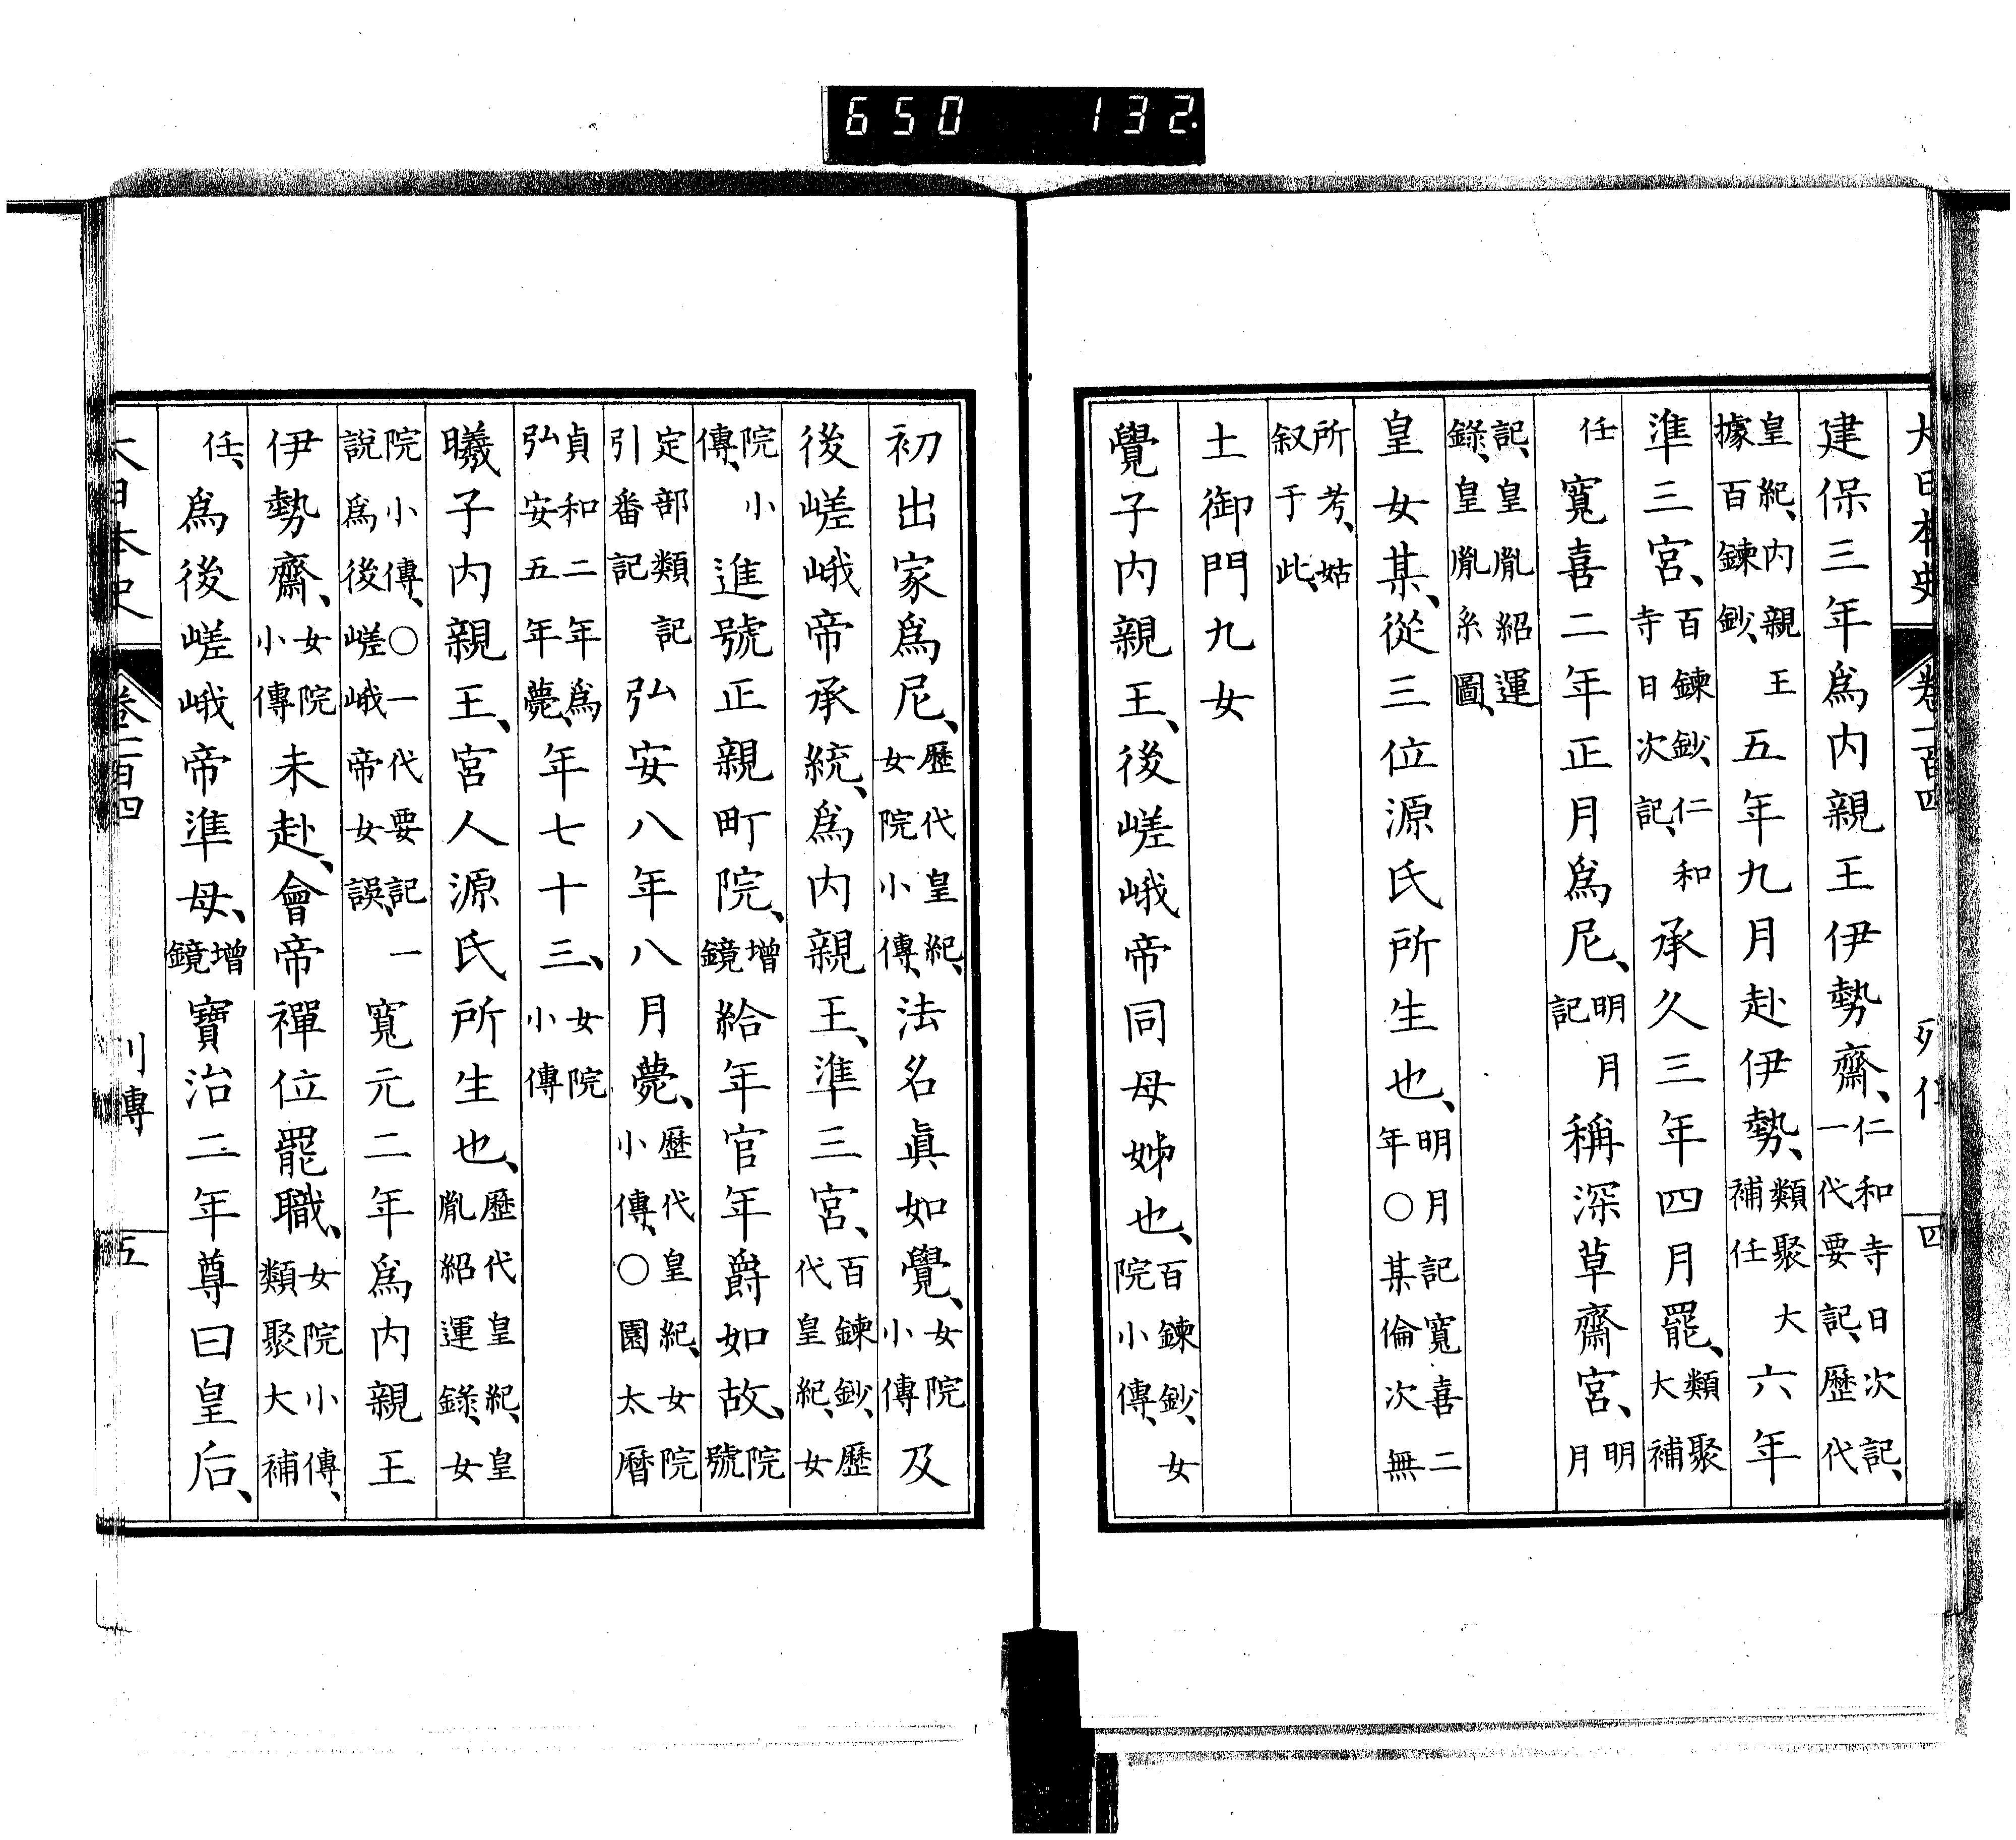 650 132.
大日本史 卷一百四 列傳 四
建保三年爲内親王伊勢齋、仁和寺日次記、一代要記、歷代
皇紀、内親王據百鍊鈔、五年九月赴伊勢、類聚大補任六年
準三宮、百鍊鈔、仁和寺日次記、承久三年四月罷、類聚大補
任寬喜二年正月爲尼、明月記稱深草齋宮、明月
記、皇胤紹運錄、皇胤系圖、
皇女某、從三位源氏所生也、明月記寬喜二年○某倫次無
所考、姑叙于此、
土御門九女
覺子内親王、後嵯峨帝同母姊也、百鍊鈔、女院小傳、
初出家爲尼、歷代皇紀、女院小傳、法名眞如覺、女院小傳及
後嵯峨帝承統、爲内親王、準三宮、百鍊鈔、歷代皇紀、女
院小傳、進號正親町院、增鏡給年官年爵如故、院號
定部類記引番記弘安八年八月薨、歷代皇紀、女院小傳、○園太曆
貞和二年爲弘安五年薨、年七十三、女院小傳
曦子内親王、宮人源氏所生也、歷代皇紀、皇胤紹運錄、女
院小傳、○一代要記一說爲後嵯峨帝女誤、寬元二年爲内親王
伊勢齋、女院小傳未赴、會帝禪位罷職、女院小傳、類聚大補
任、爲後嵯峨帝準母、增鏡寶治二年尊曰皇后、
大日本史 卷一百四 列傳 五